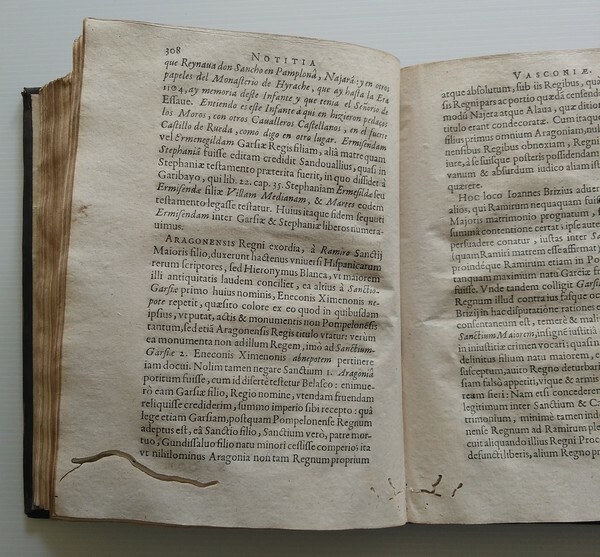 308 NOTITIA
que Reynaua don Sancho en Pamplona, Najará: y en otros
papeles del Monasterio de Hyrache, que ay hasta la Era
1104, ay memoria deste Infante y que tenia el Señorio de
Eslaue. Entiendo es este Infante à qui en hizieron pedaços
los Moros, con otros Caualleros Castellanos, en el fuerte
Castillo de Rueda, como digo en otro lugar. Ermisendam
vel Ermenegildam Garsiæ Regis filiam, aliâ matre quam
Stephaniâ fuisse editam credidit Sandouallius, quasi in
Stephaniæ testamento præterita fuerit, in quo dissidet à
Garibayo, qui lib. 22. cap. 35. Stephaniam Ermesildæ seu
Ermisendæ filiæ Villam Medianam, & Matres eodem
testamento legasse testatur. Huius itaque fidem sequuti
Ermisendam inter Garsiæ & Stephaniæ liberos numera-
uimus.
ARAGONENSIS Regni exordia, à Ramiro Sanctij
Maioris filio, duxerunt hactenus vniuersi Hispanicarum
rerum scriptores, sed Hieronymus Blanca, vt maiorem
illi antiquitatis laudem conciliet, ea altius à Sanctio-
Garsiæ primo huius nominis, Eneconis Ximenonis ne-
pote repetit, quæsito colore ex eo quod in quibusdam
ipsius, vt putat, actis & monumentis non Pompelonensis
tantum, sed etiã Aragonensis Regis titulo vtatur: verum
ea monumenta non ad illum Regem, imò ad Sanctium-
Garsiæ 2. Eneconis Ximenonis abnepotem pertinere
iam docui. Nolim tamen negare Sanctium 1. Aragoniâ
potitum fuisse, cum id disertè testetur Belasco: enimue-
rò eam Garsiæ filio, Regio nomine, vtendam fruendam
reliquisse crediderim, summo imperio sibi recepto: quâ
lege etiam Garsiam, postquam Pompelonense Regnum
adeptus est, eâ Sanctio filio, Sanctium verò, patre mor-
tuo, Gundissaluo filio natu minori cessisse comperio: ita
vt nihilominus Aragonia non tam Regnum proprium
VASCONIÆ,
atque absolutum, sub iis Regibus,
sis Regni pars ac portio quædã censenda
modũ Najera atque Alaua, quæ ditiones
titulo erant condecoratæ. Cum itaque
rius primus omnium Aragoniam, nul-
nensibus Regibus obnoxiam, Regni
iure, à se suisque posteris possidendam
vanum & absurdum iudico aliam
quærere.
Hoc loco Ioannes Brizius aduer-
alios, qui Ramirum nequaquam fuisse
Majoris matrimonio prognatum,
summa contentione certat: ipse autem
persuadere conatur, iustas inter
(quam Ramiri matrem esse affirmat)
proindéque Ramirum etiam in
quantum maximum natu Garciæ
fuisse. Vnde tandem colligit
Regnum illud contra ius fasque
Brizij in hac disputatione ratione
consentaneum est, temere &
Sanctium Maiorem, insigné iustitiâ
in iniustitiæ crimen vocari; quasi
delinitus filium natu maiorem,
susceptum, auito Regno deturba-
stam falsò appetiit, vique & armis
ream fieri: Nam etsi concederem
legitimum inter Sanctium & Ca
trimonium, minimè tamen inde
nense Regnum ad Ramirum ple
cuit aliquando illius Regni Proce
defuncti liberis, alium Regno pr